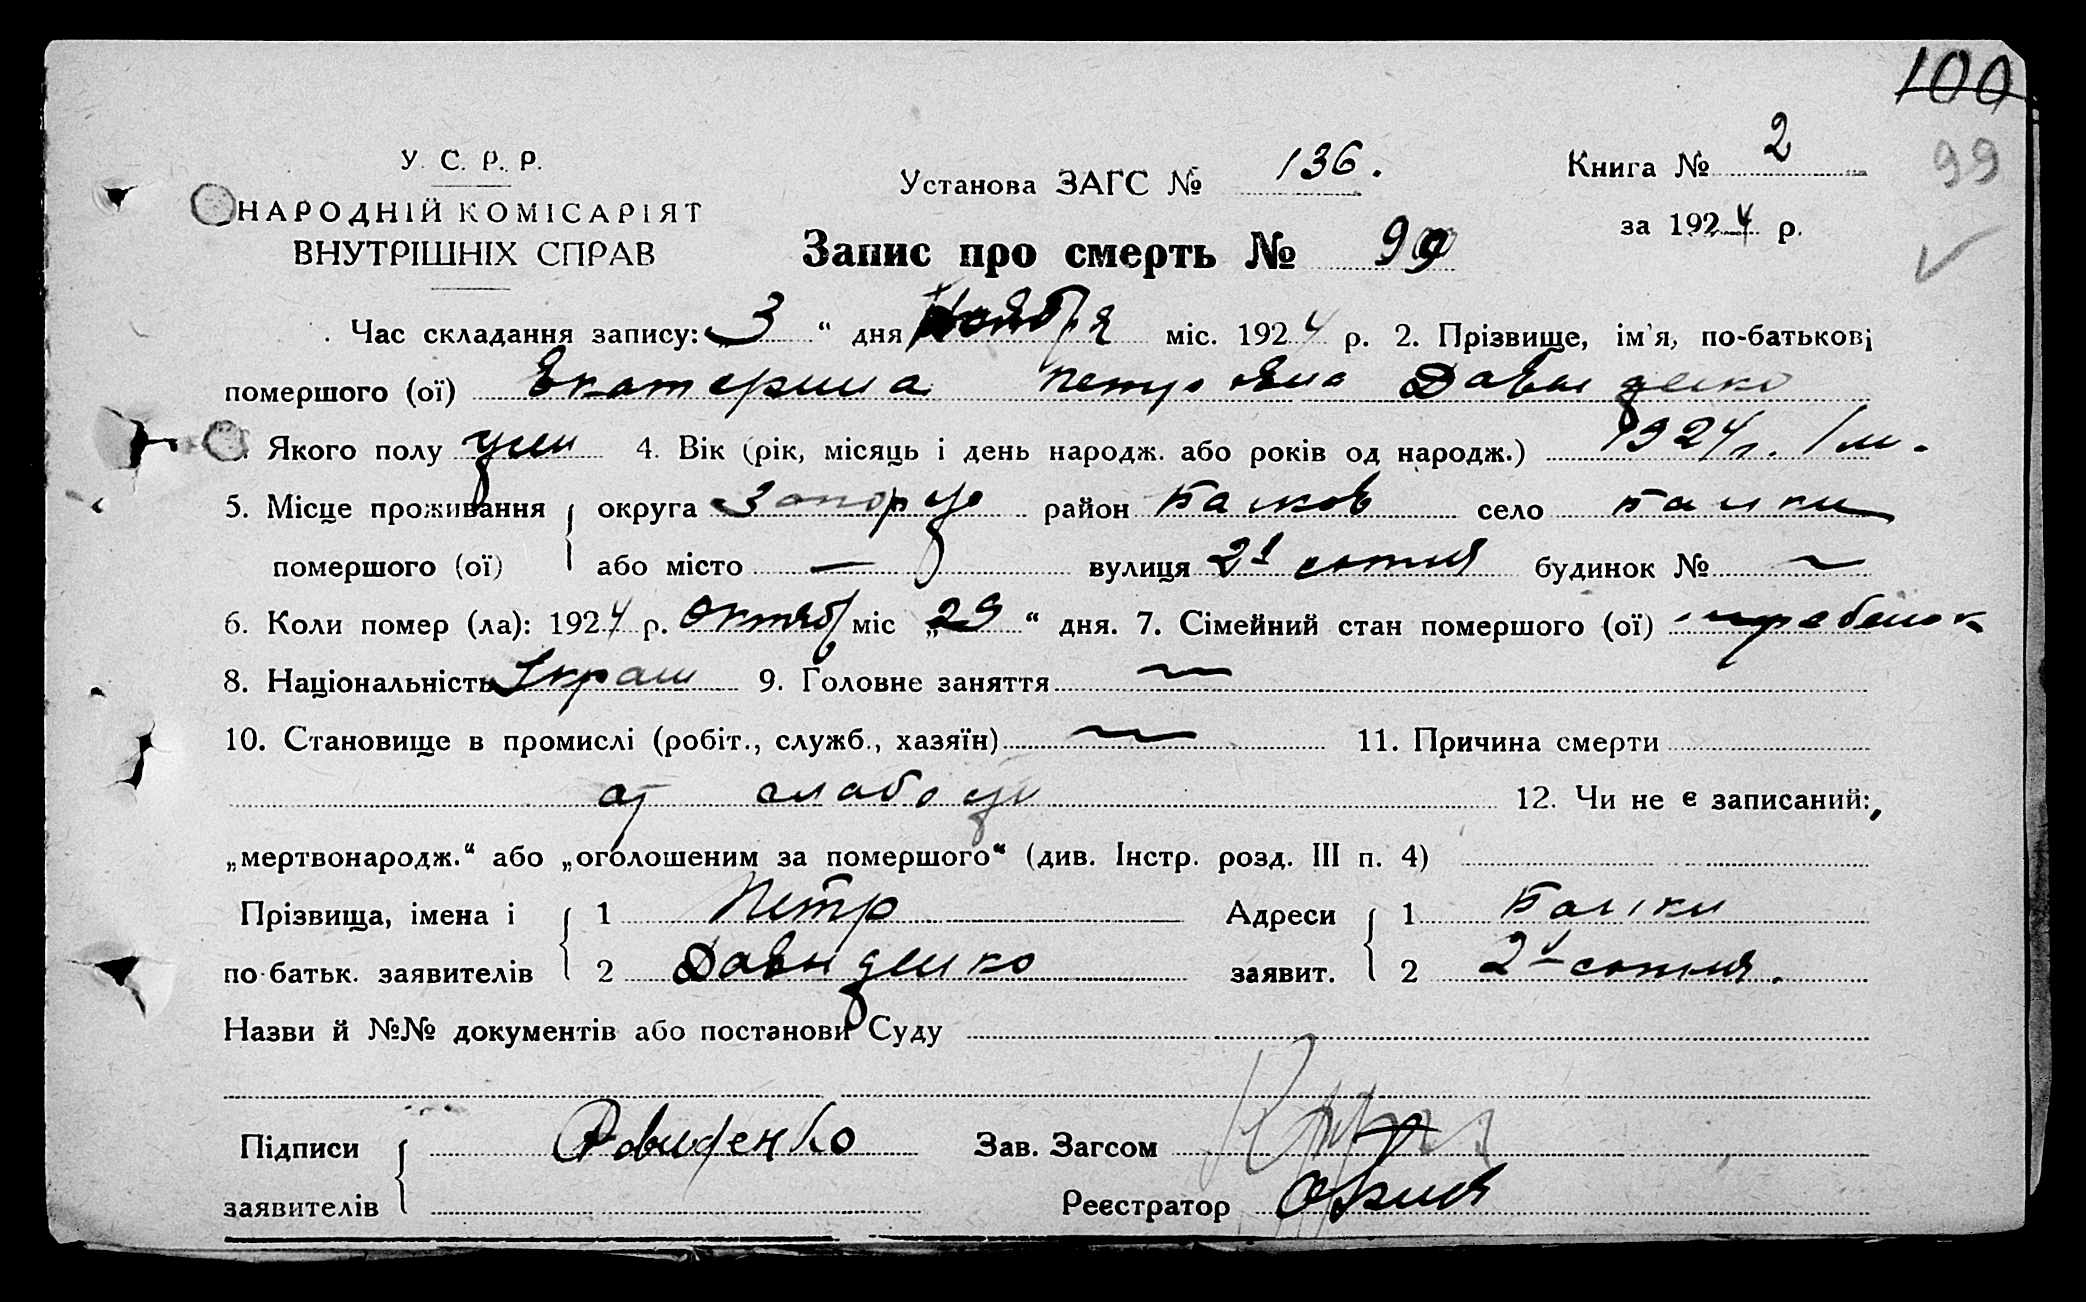 100
99
У. С. Р. Р.
НАРОДНІЙ КОМІСАРІЯТ
ВНУТРІШНІХ СПРАВ
Установа ЗАГС № 136.
Книга № 2
за 1924 р.
Запис про смерть № 99
Час складання запису: „3“ дня Ноября міс. 1924 р. 2. Прізвище, ім'я, по-батькові
помершого (ої) Екатерина Петровна Давыденко
Якого полу жен 4. Вік (рік, місяць і день народж. або років од народж.) 1924 г. 1 м.
5. Місце проживання округа Запорож район Балков село Балки
помершого (ої) або місто — вулиця 2я сотня будинок № —
6. Коли помер (ла): 1924 р. Октяб міс „29“ дня. 7. Сімейний стан помершого (ої) ребенок
8. Національність Украин 9. Головне заняття —
10. Становище в промислі (робіт., служб., хазяїн) — 11. Причина смерти
от слабости 12. Чи не є записаний:
„мертвонародж.“ або „оголошеним за помершого“ (див. Інстр. розд. III п. 4)
Прізвища, імена і 1 Петр Адреси 1 Балки
по-батьк. заявителів 2 Давыденко заявит. 2 2я сотня.
Назви й №№ документів або постанови Суду
Підписи Давиденко Зав. Загсом
заявителів Реєстратор